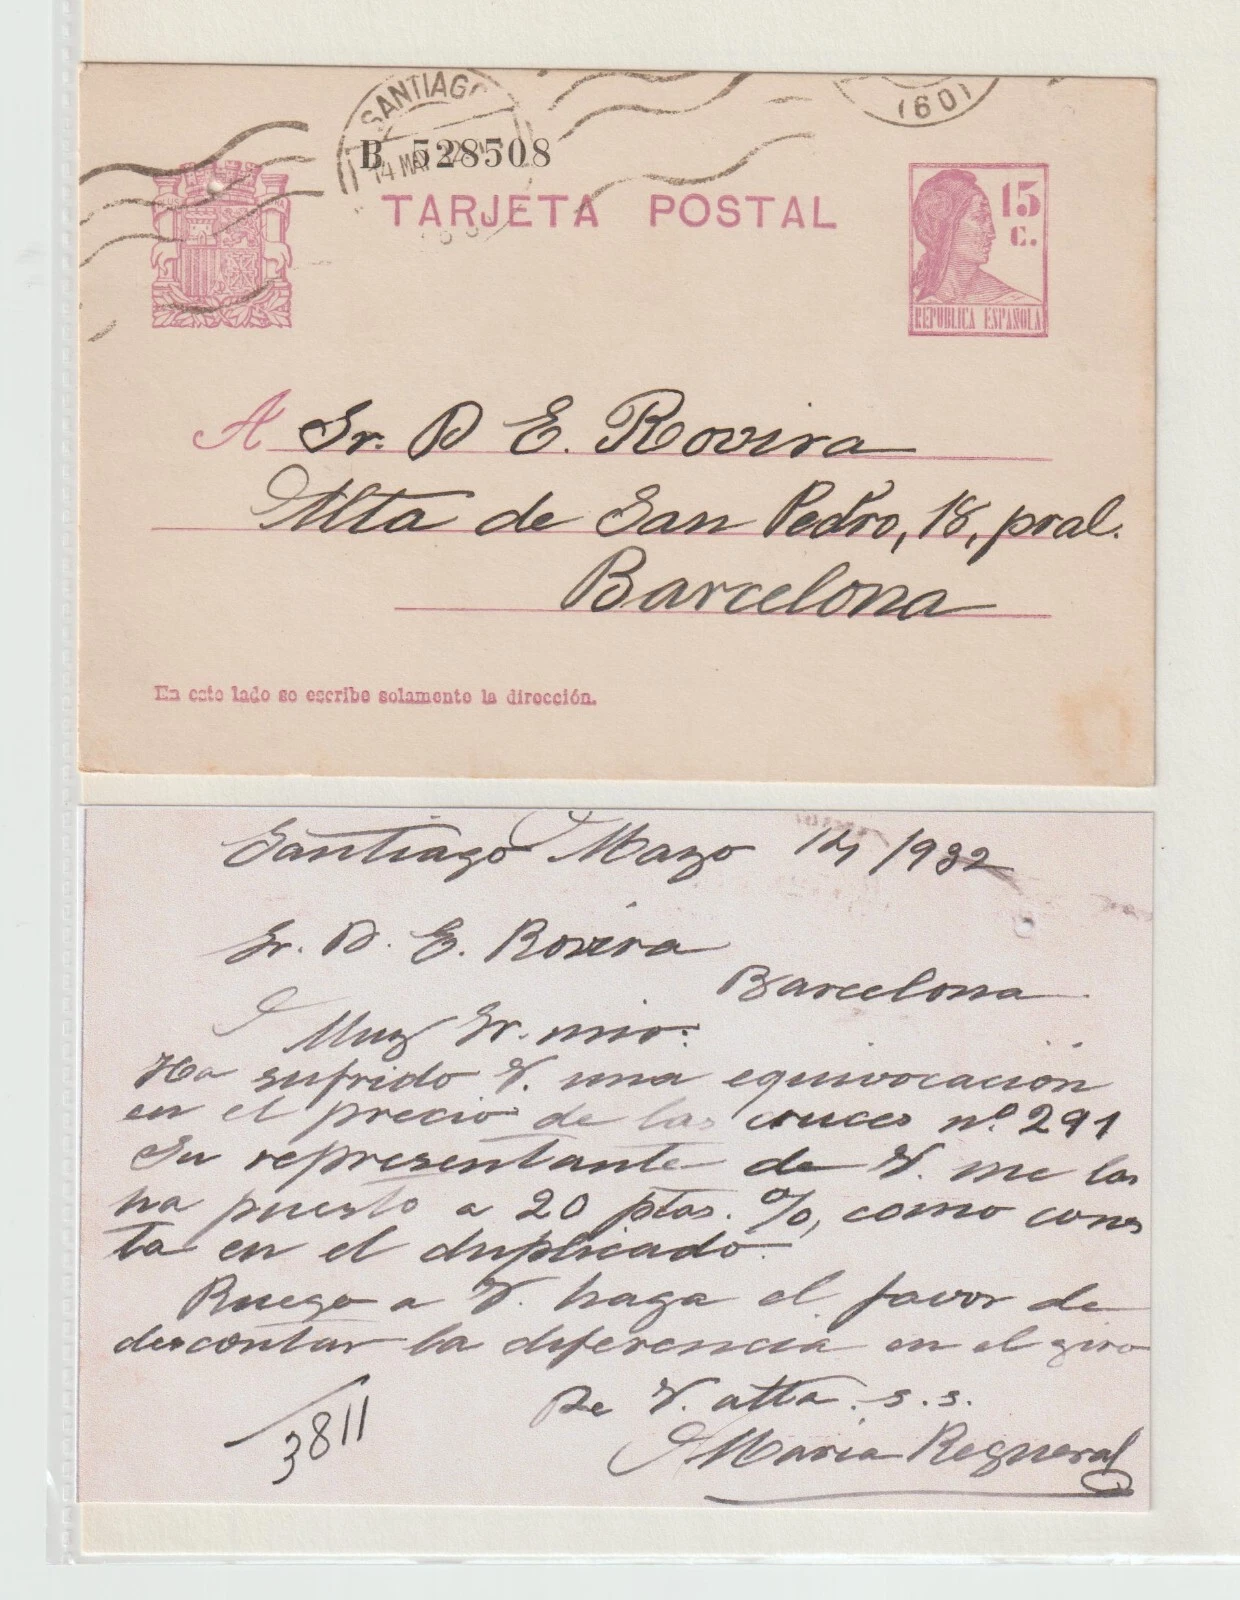 SANTIAGO
14 MAY 32
(60)
B 528508
TARJETA POSTAL
15
C.
REPUBLICA ESPAÑOLA
A Sr. D E. Rovira
Alta de San Pedro, 18, pral.
Barcelona
En este lado se escribe solamente la dirección.
Santiago Mayo 14/1932
Sr. D. E. Rovira
Barcelona
Muy Sr. mio:
Ha sufrido V. una equivocación
en el precio de las cruces nº 291
Su representante de V. me las
ha puesto a 20 ptas. %, como cons
ta en el duplicado.
Ruego a V. haga el favor de
descontar la diferencia en el giro
De V. atta. s.s.
Maria Regueral
3811